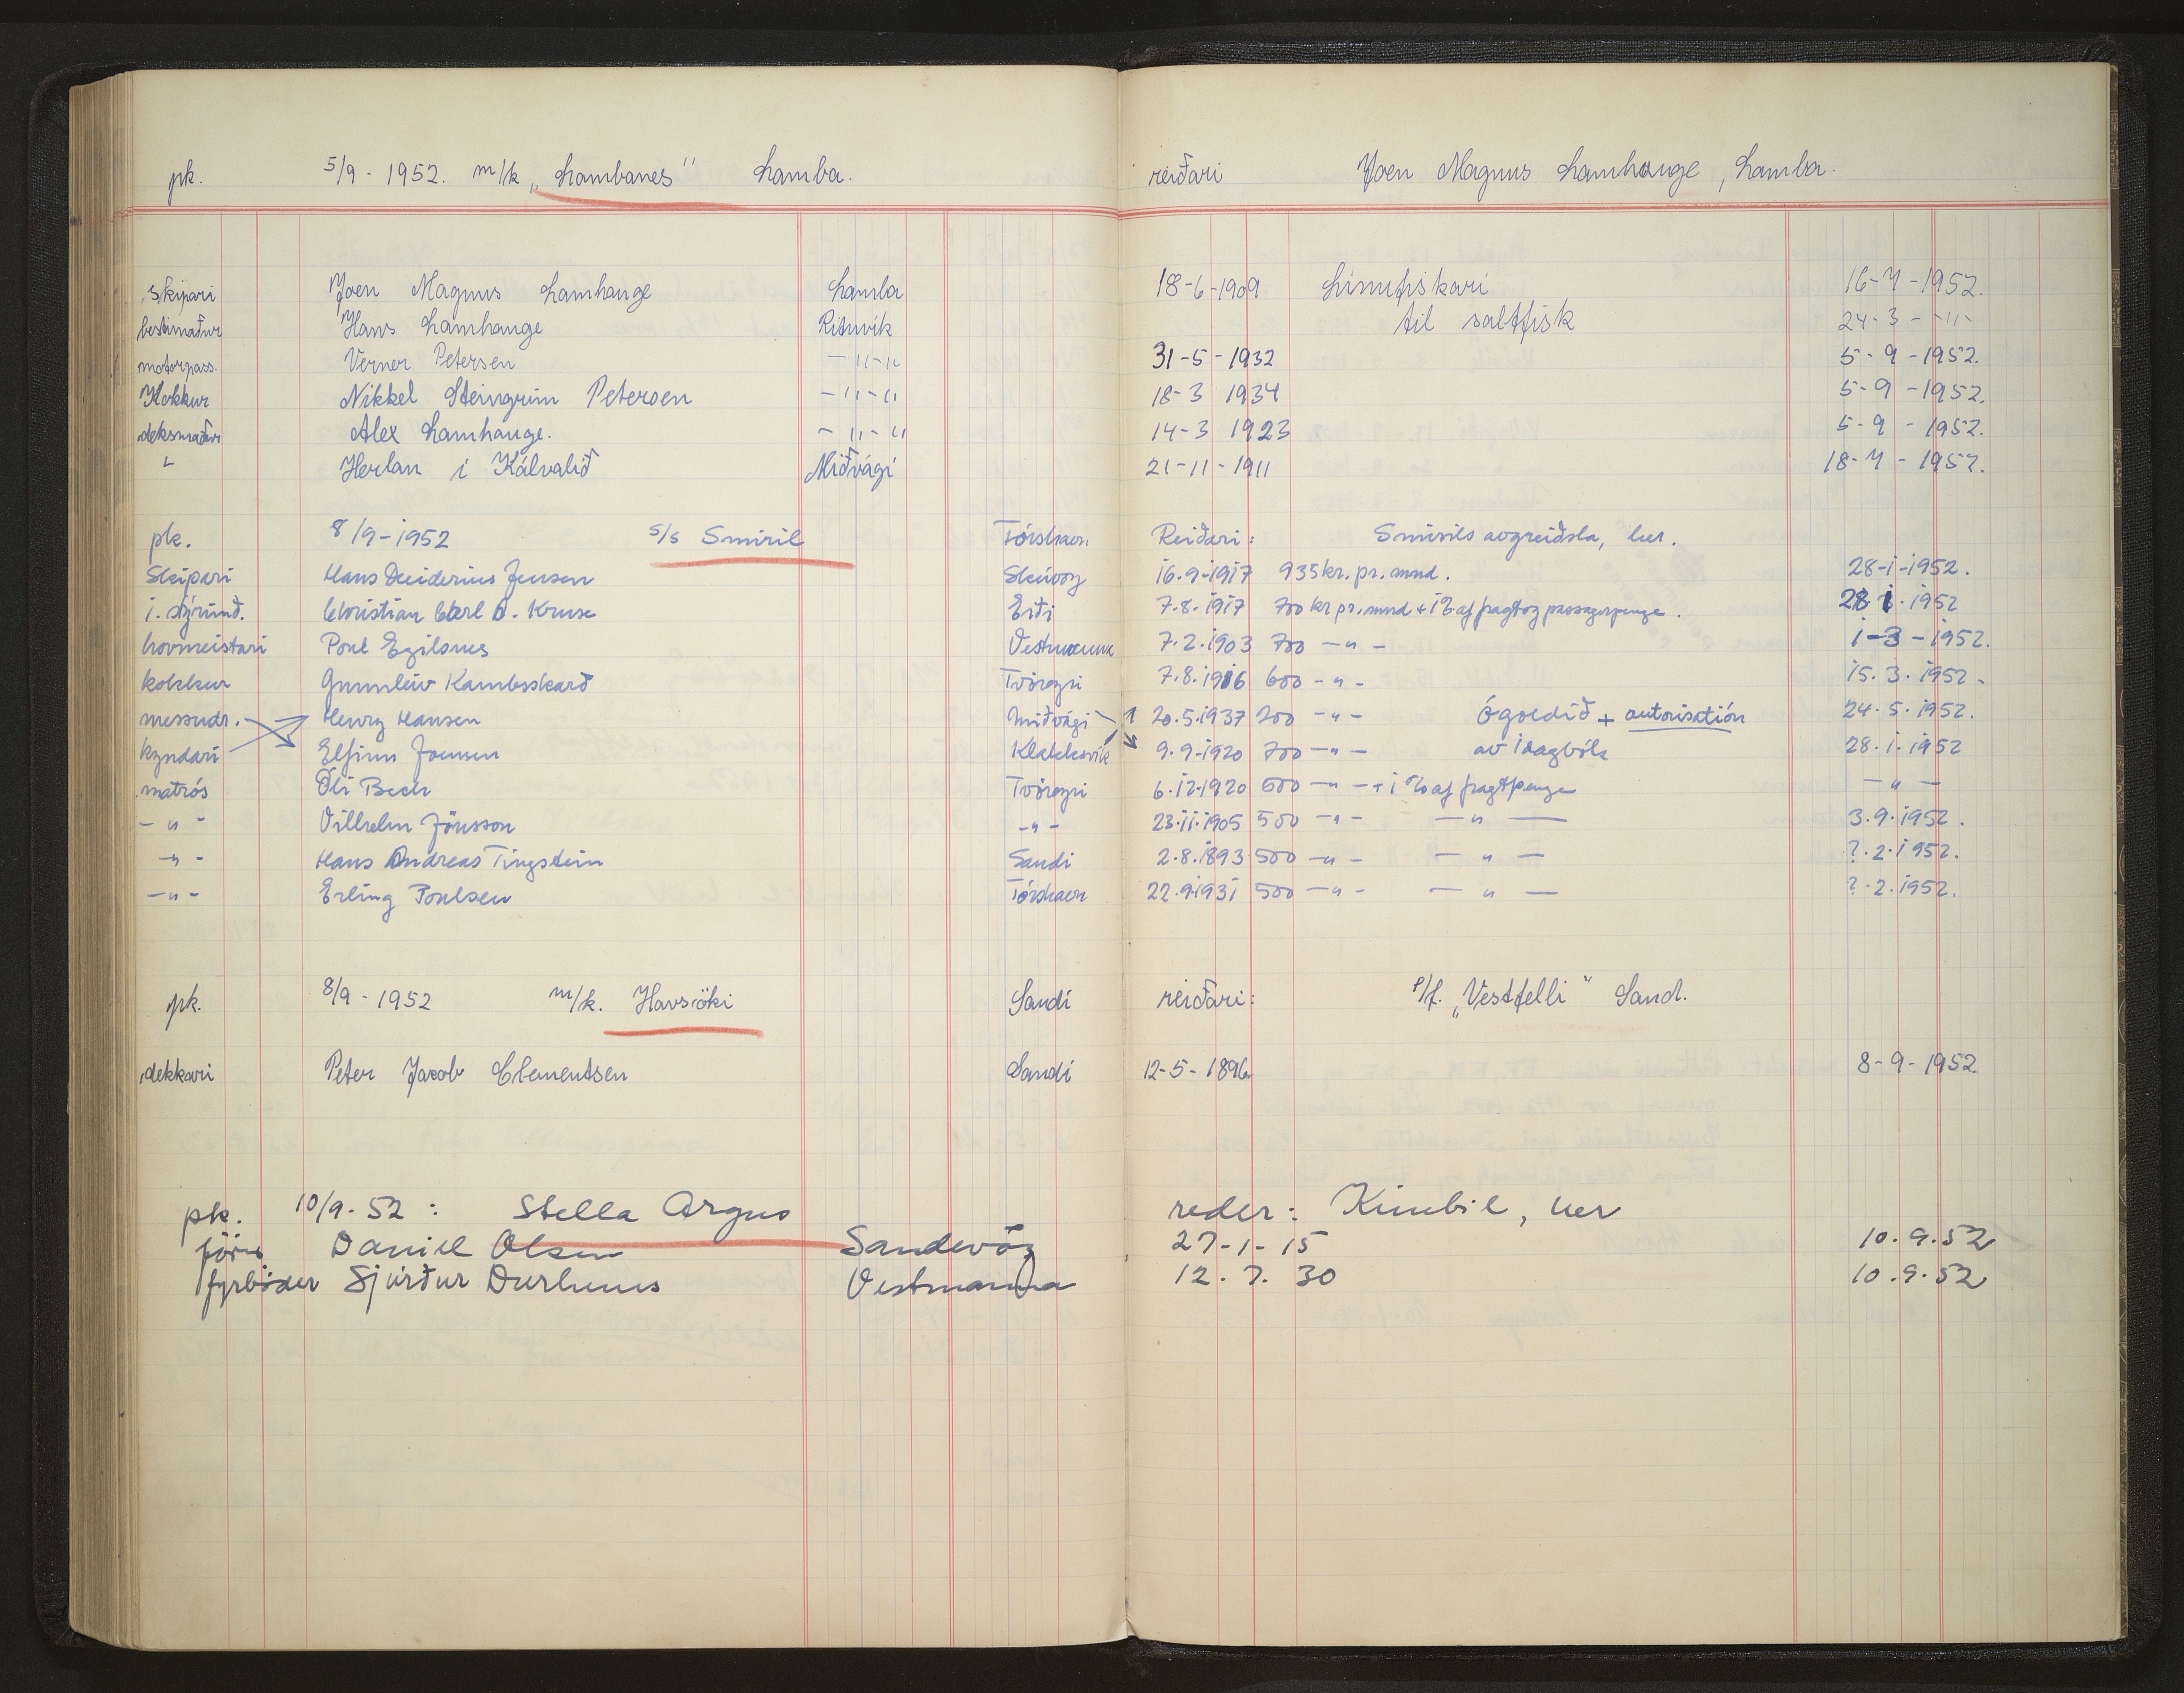 pk. 5/9 - 1952. m/k „Lambanes" Lamba. reiðari Joen Magnus Lamhauge, Lamba.
skipari Joen Magnus Lamhauge Lamba 18-6-1909 Línufiskari 16-7-1952.
bestimaður Hans Lamhauge Rituvík til saltfisk 24-3 - -"-
motorpass. Verner Petersen -"-" 31-5-1932 5-9-1952.
Kokkur Nikkel Steingrim Petersen -"-" 18-3 1934 5-9-1952.
deksmaður Alex Lamhauge. -"-" 14-3 1923 5-9-1952.
" Herlan í Kálvalíð Miðvági 21-11-1911 18-7-1952.
pk. 8/9-1952 s/s Smiril Tórshavn Reiðari: Smirils avgreiðsla, her.
Skipari Hans Jensen Skúvoy 16.9-1917 935 kr. pr. mnd. 28-1-1952.
1. stýrimð. Christian Carl O. Kruse Eiði 7.8.1917 700 kr pr. mnd + 1% af fragt og passagerpenge. 28.1.1952
hovmeistari Poul Egilsnes Vestmanna 7.2.1903 700 -"- 1-3-1952.
kokkur Gunnleiv Kambsskarð Tvöroyri 7.8.1916 600 -"- 15.3.1952.
messudr. Henry Hansen Miðvági 20.5.1937 200 -"- Ógoldið + autorisatión 24.5.1952.
kyndari Elfinn Joensen Klakksvík 9.9.1920 700 -"- av 28.1.1952
matrós Óli Bech Tvöroyri 6.12.1920 600 -"- + 1% af fragtpenge -"-
-"- Vilhelm Jönsson -"- 23.11.1905 500 -"- -"- 3.9.1952.
-"- Hans Andreas Tingstein Sandi 2.8.1893 500 -"- -"- ?.2.1952.
-"- Erling Poulsen Tórshavn 22.9.1931 500 -"- -"- ?.2.1952.
pk. 8/9-1952 m/k. Havsöki Sandi reiðari: P/f. „Vestfelli" Sand.
dekkari Peter Jacob Clementsen Sandi 12-5-1896 8-9-1952.
pk. 10/9-52: Stella Argus reder: Kimbil, her
Daniel Olsen Sandevág 27-1-15 10.9.52
fyrbøder Sjúrður Durhuus Vestmanna 12.7.30 10.9.52